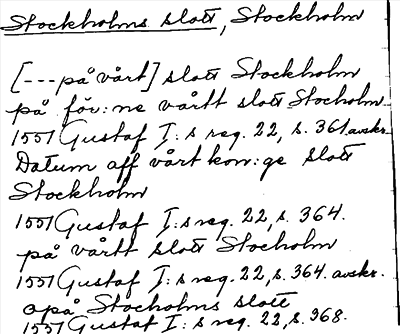 Stockholms slott, Stockholm
[---på vårt] slott Stockholm
på för:ne vårtt slott Stocholm
1551 Gustaf I:s reg. 22, s. 361 avskr.
Datum aff vårt kon:ge slott
Stockholm
1551 Gustaf I:s reg. 22, s. 364.
på vårtt slott Stocholm
1551 Gustaf I:s reg. 22, s. 364. avskr.
opå Stocholms slott
1551 Gustaf I:s reg. 22, s. 368.